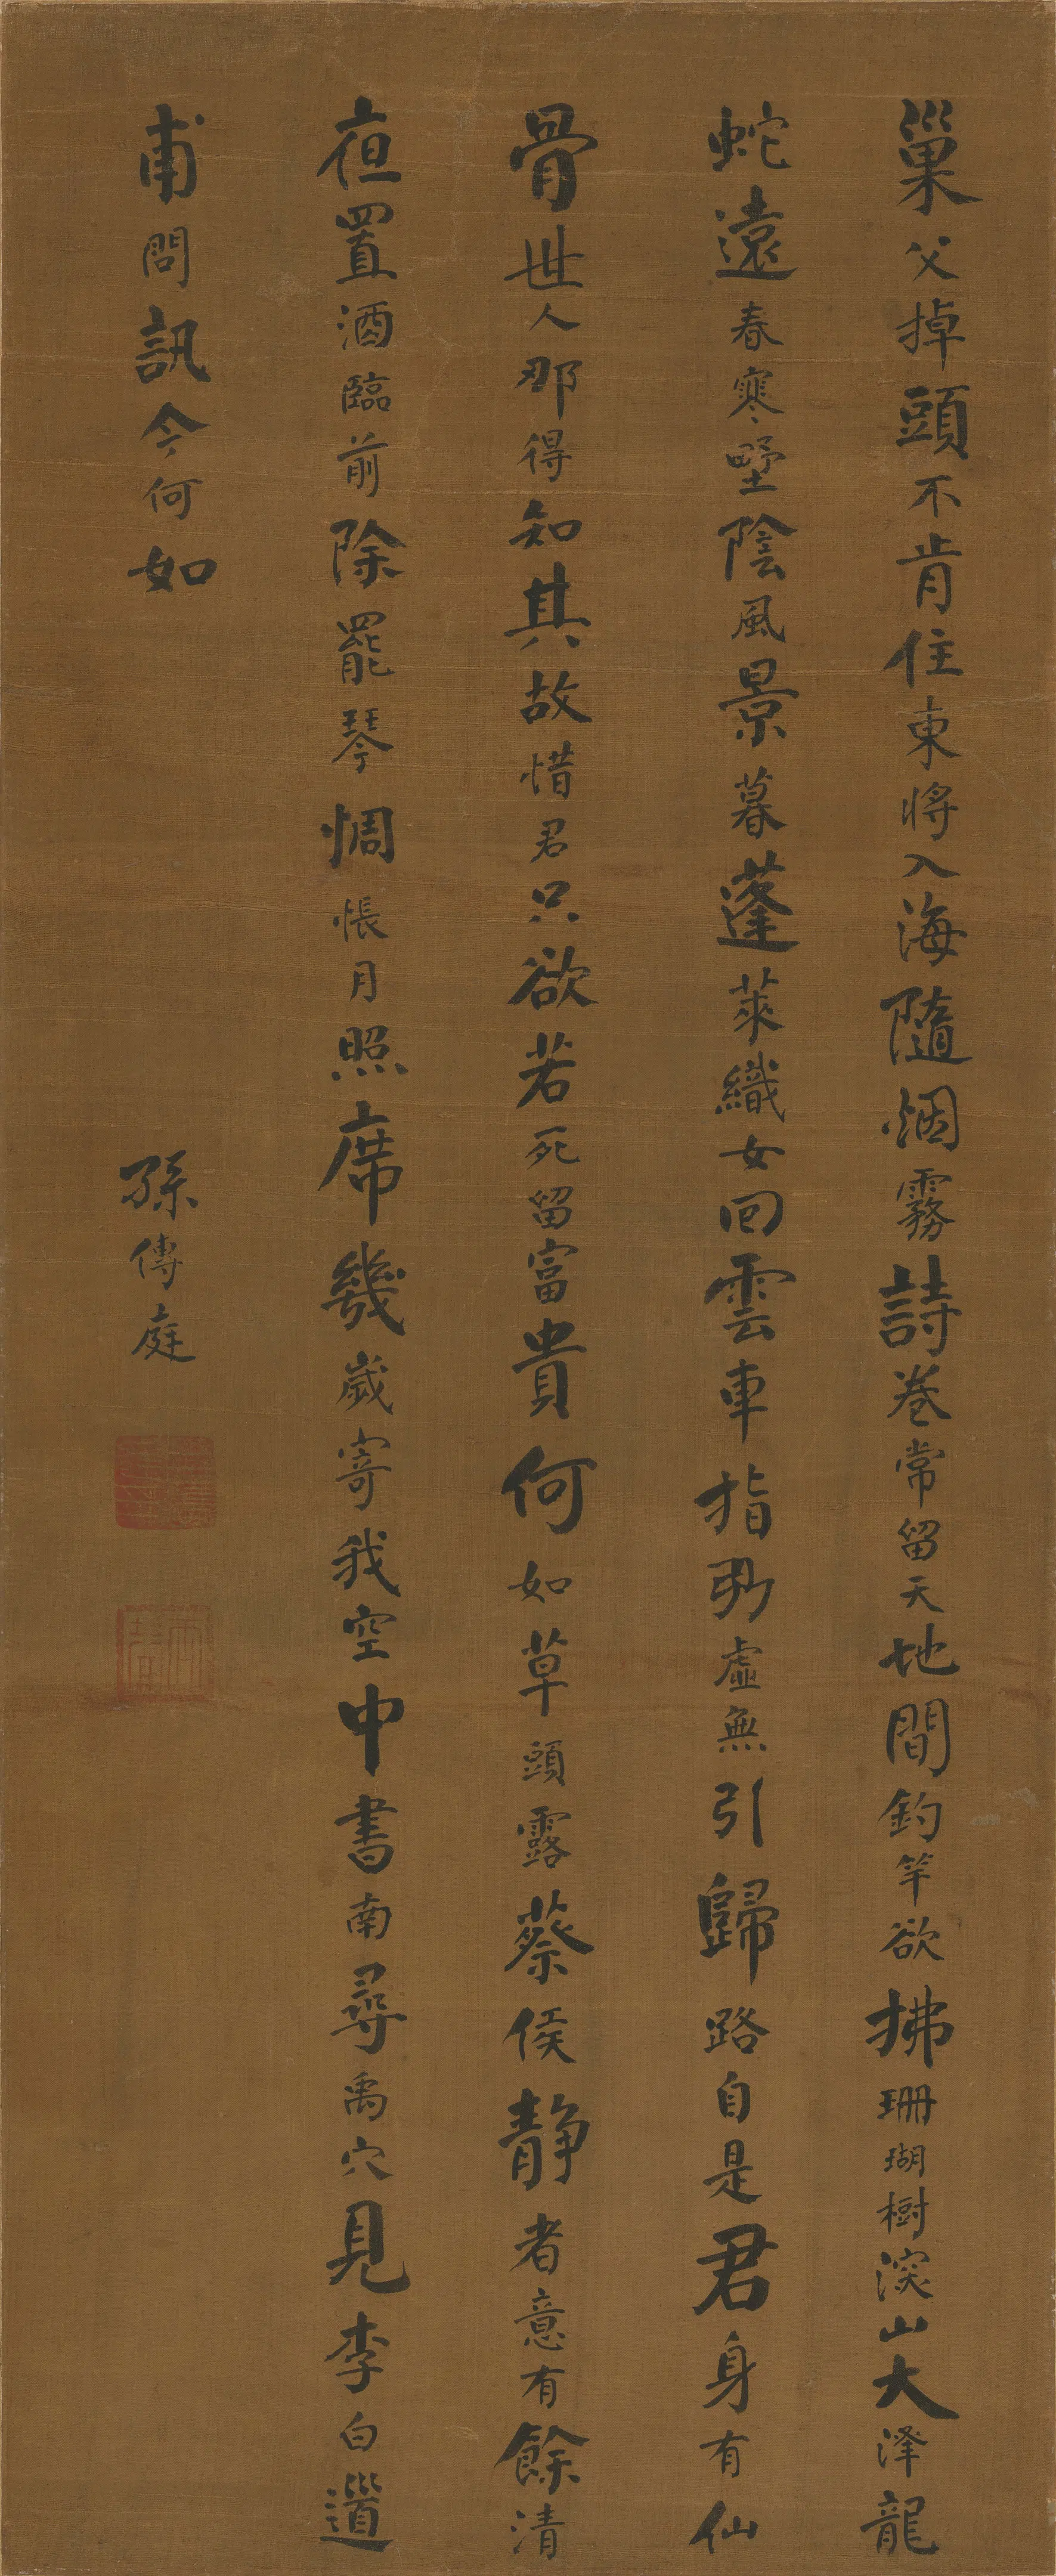 巢父掉頭不肯住東將入海隨烟霧詩卷常留天地間釣竿欲拂珊瑚樹深山大澤龍
蛇遠春寒埜陰風景暮蓬萊織女回雲車指㸃虛無引歸路自是君身有仙
骨世人那得知其故惜君只欲若死留富貴何如草頭露蔡侯靜者意有餘清
夜置酒臨前除罷琴惆悵月照席幾歲寄我空中書南尋禹穴見李白道
甫問訊今何如
孫傳庭